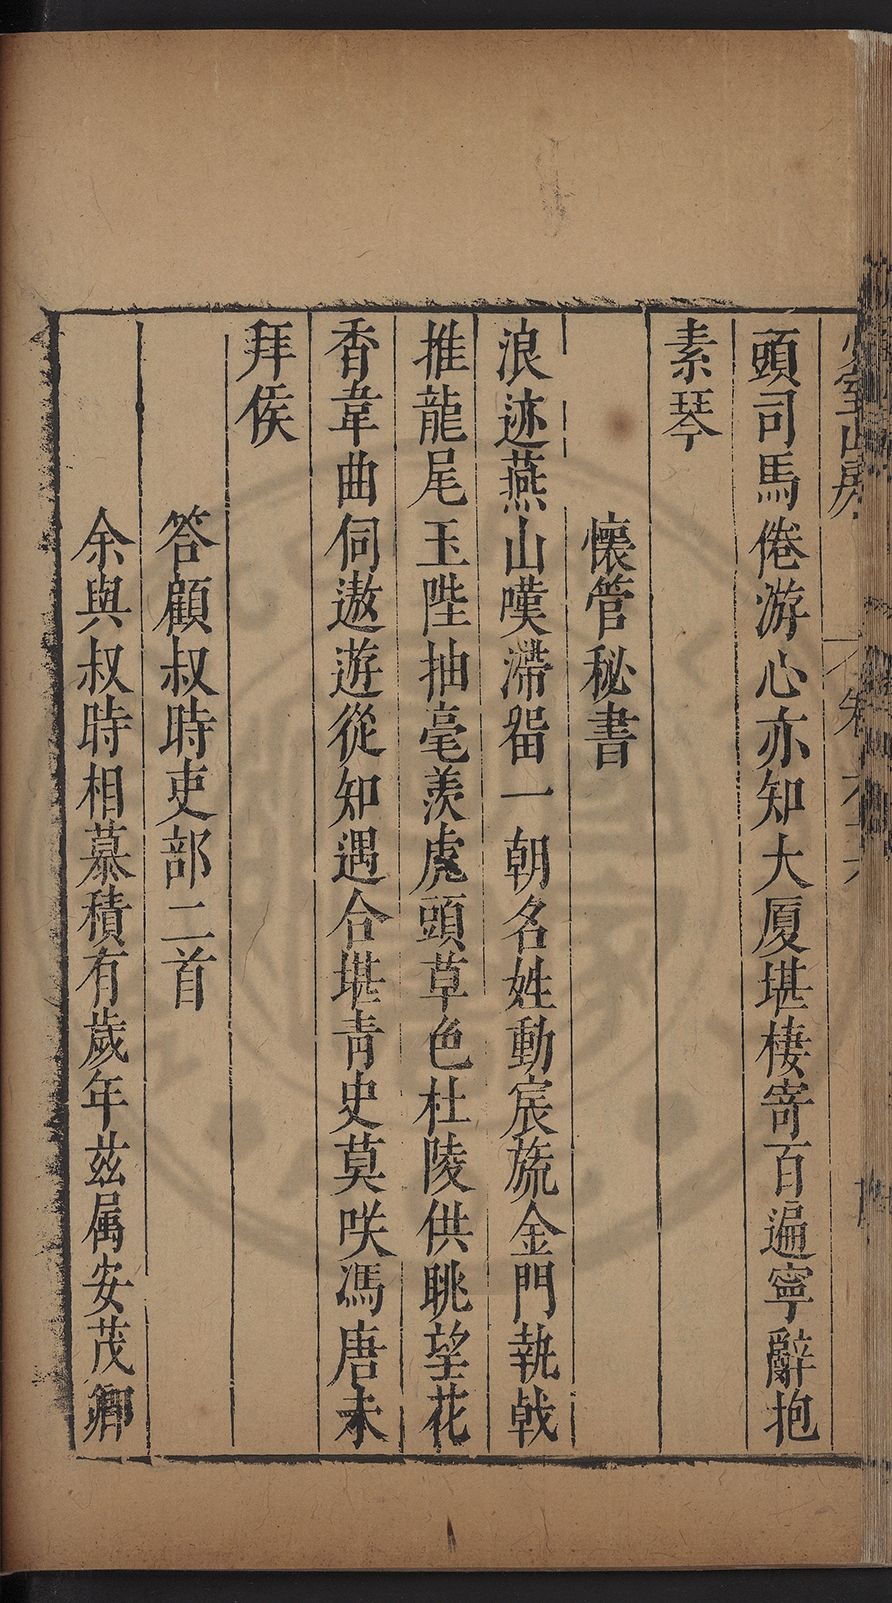 頭司馬倦游心亦知大厦堪棲寄百遍寧辭抱
素琴
懷管秘書
浪迹燕山嘆滯畱一朝名姓動宸旒金門執戟
推龍尾玉陛抽毫羨虎頭草色杜陵供眺望花
香韋曲伺遨遊從知遇合堪青史莫咲馮唐未
拜侯
答顧叔時吏部二首
余與叔時相慕積有歲年茲属安茂卿